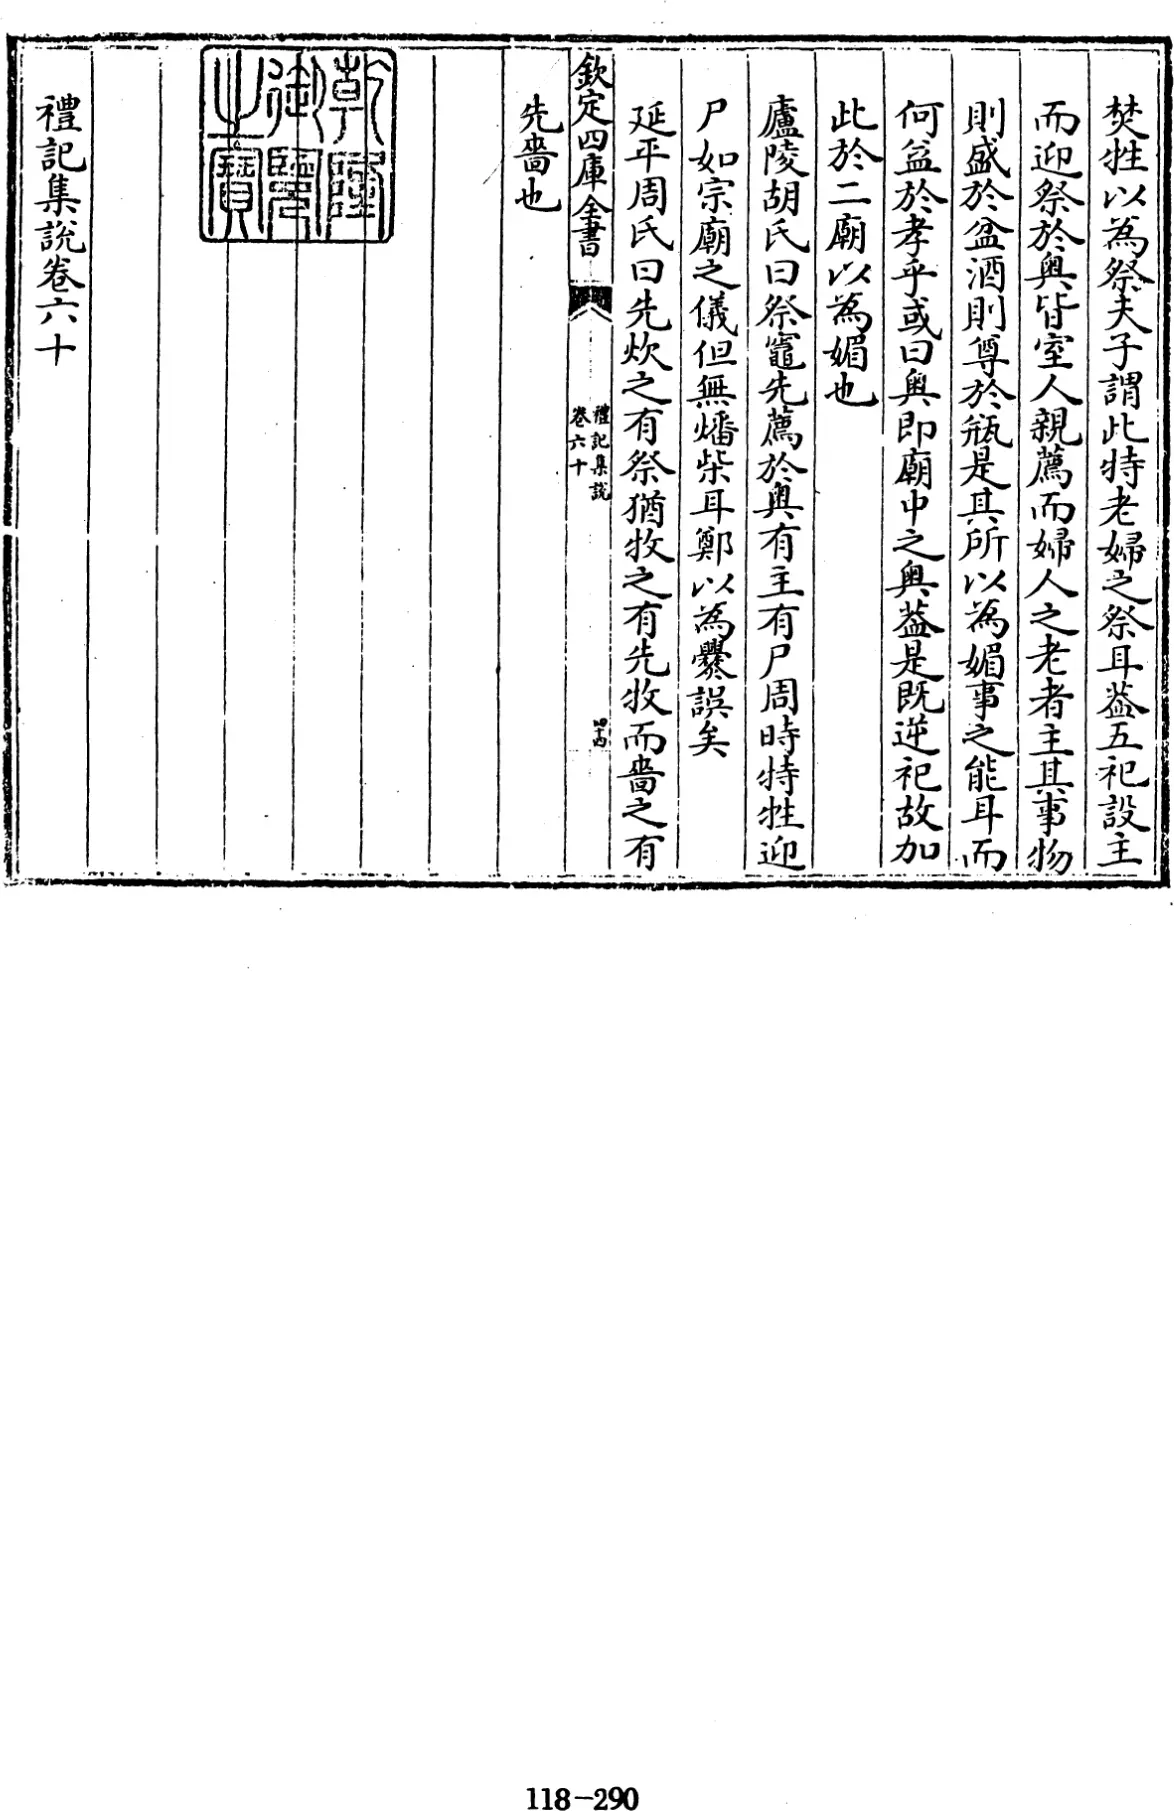 焚牲以為祭夫子謂此特老婦之祭耳葢五祀設主
而迎祭於奥皆室人親薦而婦人之老者主其事物
則盛於盆酒則尊於瓶是其所以為媚事之能耳而
何益於孝乎或曰奥即廟中之奥葢是既逆祀故加
此於二廟以為媚也
廬陵胡氏曰祭竈先薦於奥有主有尸周時特牲迎
尸如宗廟之儀但無燔柴耳鄭以為爨誤矣
延平周氏曰先炊之有祭猶牧之有先牧而嗇之有
欽定四庫全書
禮記集說
卷六十
先嗇也
乾隆
御覽
之寶
禮記集說卷六十
118-290